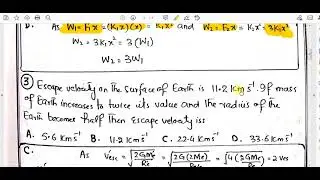 D. As W₁ = F₁x = (K₁x)(x) = K₁x² and W₂ = F₂x = K₂x² = 3K₁x²
W₂ = 3K₁x² = 3(W₁)
W₂ = 3W₁
③ Escape velocity on the surface of Earth is 11.2 kms⁻¹. If mass
of Earth increases to twice its value and the radius of the
Earth becomes half then escape velocity is:
A. 5.6 kms⁻¹ B. 11.2 kms⁻¹ C. 22.4 kms⁻¹ D. 33.6 kms⁻¹
C. As Vesc =